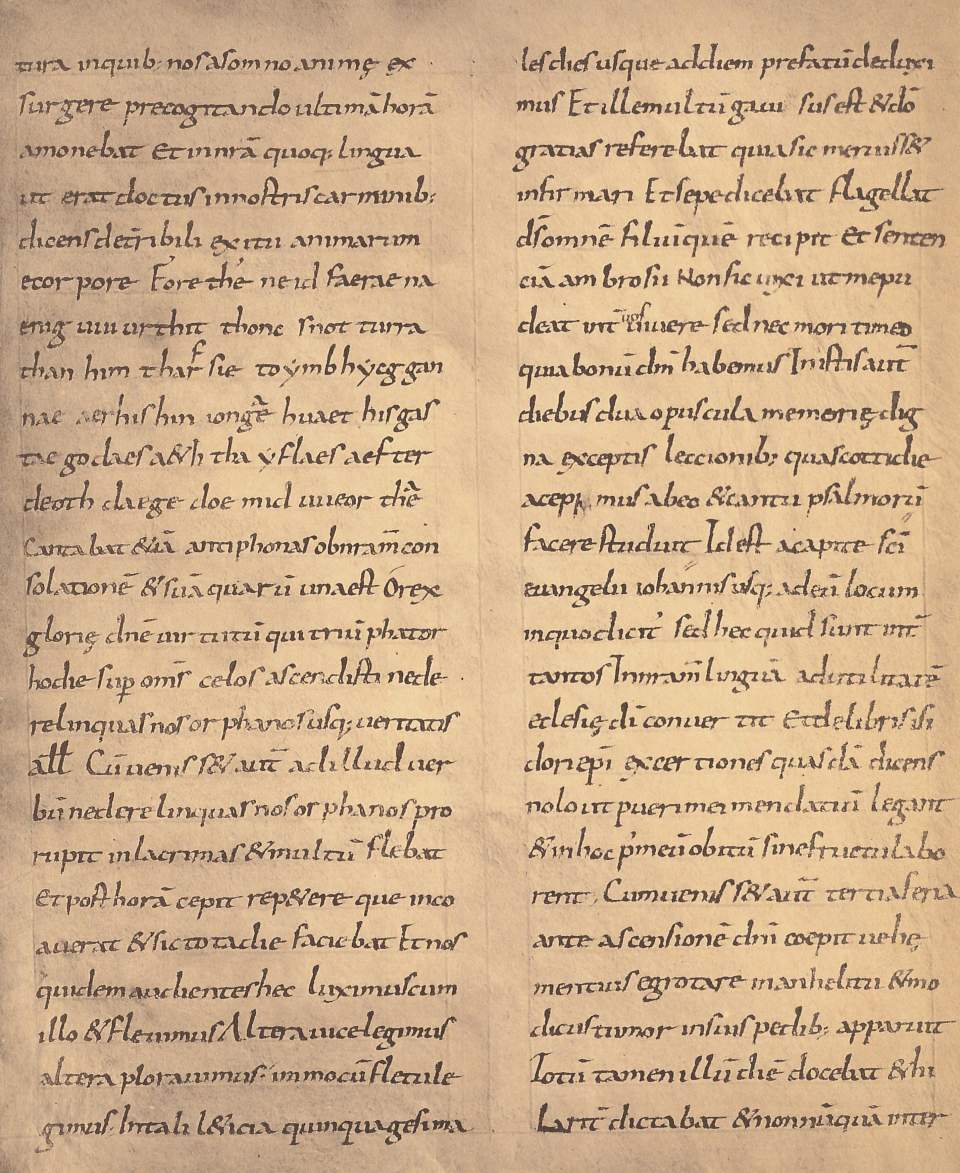 tura inquib; nos a somno animę ex
surgere precogitando ultimā horā
amonebat Et in nrā quoq; lingua
ut erat doctus in nostris carminib;
dicens de tribili exitu animarum
e corpore Fore the' neidfaerae na
enig uuiurthit thonc snotturra
than him tharf sie to ymbhycggan
nae aer his hin iongae huaet his gas
tae godaes aeththa yflaes aefter
deothdaege doemid uueorthē
Cantabat & iā antiphonas ob nrām con
solationē & suā quarū una est O rex
glorię dnē uirtutū qui triūphator
hodie sup omīs celos ascendisti ne de
relinquas nos orphanos usq; ueritatis
all Cū uenisset aut ad illud uer
bū ne derelinquas nos orphanos pro
rupit in lacrimas & multū flebat
Et post horā cepit rep&ere que inco
auerat & sic tota die faciebat Et nos
quidem audientes hec luximus cum
illo & fleuimus Altera uice legimus
altera plorauimus immo cū fletu le
gimus In tali l&icia quinquagesima
les dies usque ad diem prefatū deduxi
mus Et ille multū gauisus est & dō
gratias referebat quia sic meruiss&
infirmari Et sepe dicebat flagellat
ds omnē filiū quē recipit Et senten
ciā ambrosii Non sic uixi ut me pu
deat int uos uiuere sed nec mori timeo
quia bonū dm habemus In istis aut
diebus dua opuscula memorię dig
na exceptis leccionib; quas cottidie
acepimus ab eo & cantu psalmorū
facere studuit Id est a capite scī
euangelii iohannis usq; ad eū locum
in quo dicit' sed hec quid sunt int
tantos In nram linguā ad utilitatē
eclesię dī conuertit Et de libris isi
dori epī excertiones quasdā dicens
nolo ut pueri mei mendatiū legant
& in hoc p' meū obitū sine fructu labo
rent Cum uenisset aut tertia feria
ante ascensionē dnī coepit uehe
mentius egrotare in anhelitu & mo
dicus tumor in suis pedib; apparuit
Totū tamen illū diē docebat & hi
larit dictabat & nonnūquā inter